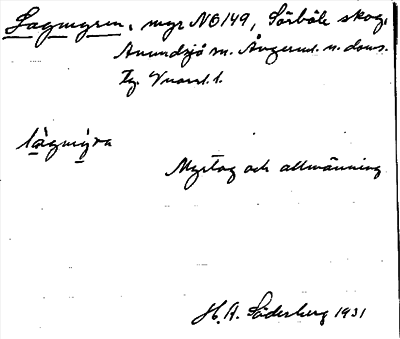 Lagmyren, myr NO 149, Sörböle skog,
Anundsjö sn. Ångerml. n. doms.
lägmýra
Myrtag och allmänning
H. A. Söderberg 1931